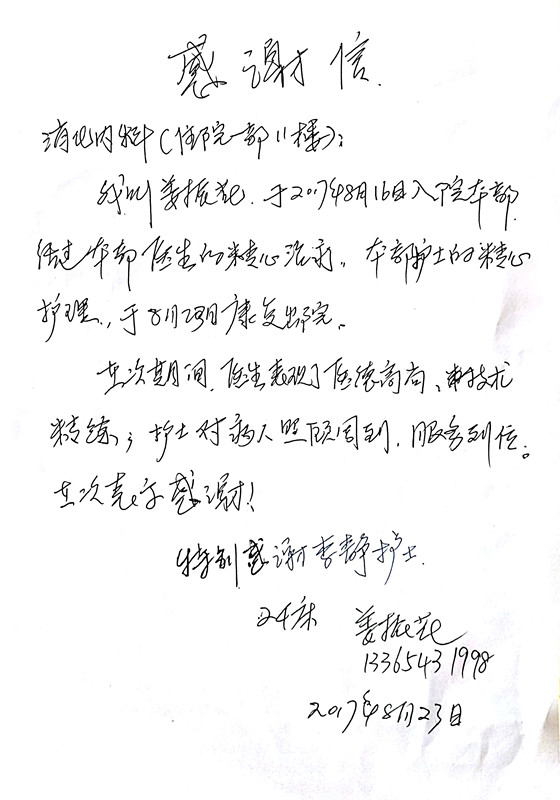 感谢信
消化内科(住院一部11楼):
我叫姜振花.于2017年8月16日入院本部.
经过本部医生的精心治疗。本部护士的精心
护理.,于8月23日康复出院。
在次期间,医生表现了医德高尚、技术
精练;护士对病人照顾周到,服务到位。
在次表示感谢!
特别感谢李静护士.
24床 姜振花
13365431998
2017年8月23日